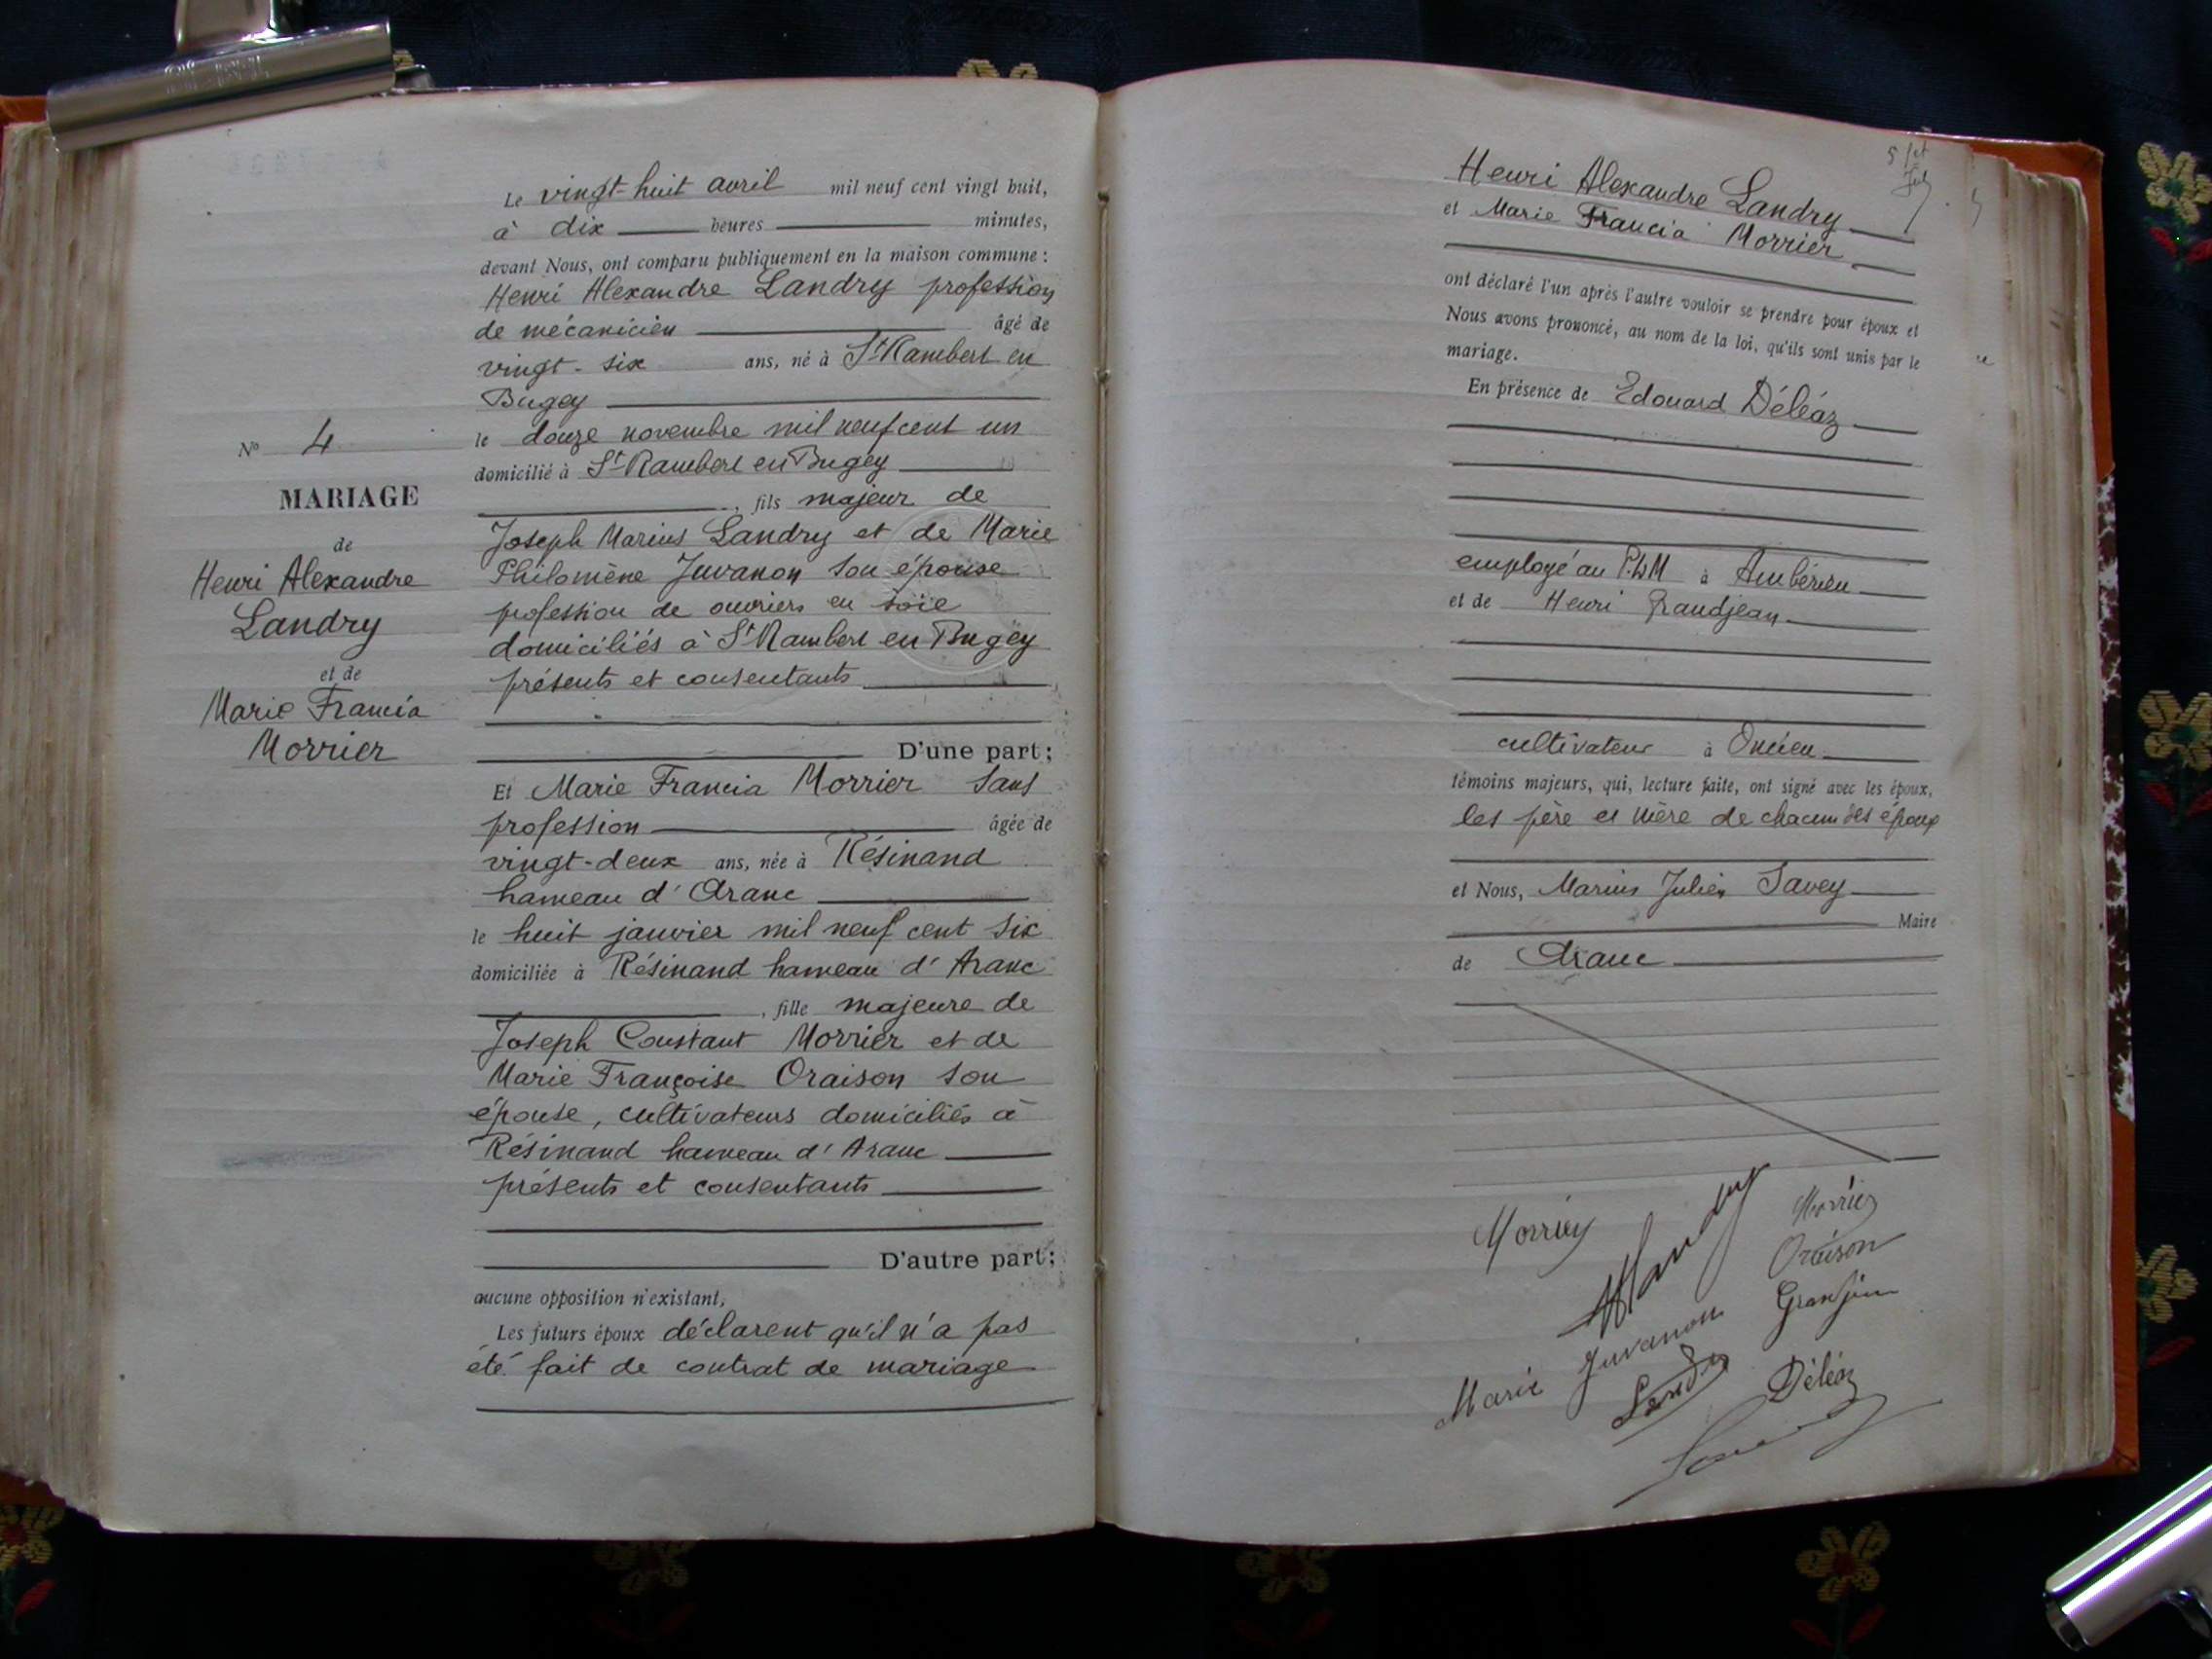 Le vingt-huit avril mil neuf cent vingt huit,
à dix heures minutes,
devant Nous, ont comparu publiquement en la maison commune :
Henri Alexandre Landry profession
de mécanicien âgé de
vingt-six ans, né à St Rambert en
Bugey
le douze novembre mil neuf cent un
domicilié à St Rambert en Bugey
, fils majeur de
Joseph Marius Landry et de Marie
Philomène Juvanon son épouse
profession de ouvriers en soie
domiciliés à St Rambert en Bugey
présents et consentants
D'une part ;
Et Marie Francia Morrier sans
profession âgée de
vingt-deux ans, née à Résinand
hameau d'Aranc
le huit janvier mil neuf cent six
domiciliée à Résinand hameau d'Aranc
, fille majeure de
Joseph Constant Morrier et de
Marie Françoise Oraison son
épouse, cultivateurs domiciliés à
Résinand hameau d'Aranc
présents et consentants
D'autre part ;
aucune opposition n'existant,
Les futurs époux déclarent qu'il n'a pas
été fait de contrat de mariage
N° 4
MARIAGE
de
Henri Alexandre
Landry
et de
Marie Francia
Morrier
Henri Alexandre Landry
et Marie Francia Morrier
ont déclaré l'un après l'autre vouloir se prendre pour époux et
Nous avons prononcé, au nom de la loi, qu'ils sont unis par le
mariage.
En présence de Edouard Déléaz
employé au P.L.M à Ambérieu
et de Henri Grandjean
cultivateur à Oncieu
témoins majeurs, qui, lecture faite, ont signé avec les époux,
les père et mère de chacun des époux
et Nous, Marius Julien Savey
Maire
de Aranc
Morrier
HLandry
Morrier
Oraison
Granjean
Marie Juvanon
Landry
Déléaz